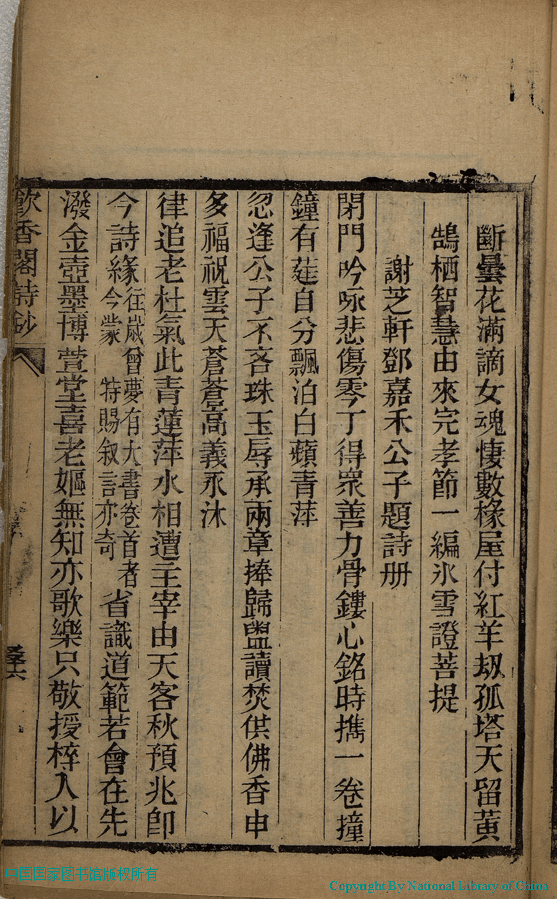 斷曇花滿謫女魂悽數椽屋付紅羊刼孤塔天留黃
鵠栖智慧由來完孝節一編氷雪證菩提
謝芝軒鄧嘉禾公子題詩册
閉門吟咏悲傷零丁得眾善力骨鏤心銘時擕一卷撞
鐘有莛自分飄泊白蘋青萍
忽逢公子不吝珠玉辱承兩章捧歸盥讀焚供佛香申
多福祝雲天蒼蒼高義永沐
律追老杜氣此青蓮萍水相遭主宰由天客秋預兆卽
今詩緣往歲曾夢有大書卷首者今蒙特賜叙言亦奇省識道範若會在先
潑金壺墨博萱堂喜老嫗無知亦歌樂只敬授梓人以
飲香閣詩鈔
中国国家图书馆版权所有
Copyright By National Library of China